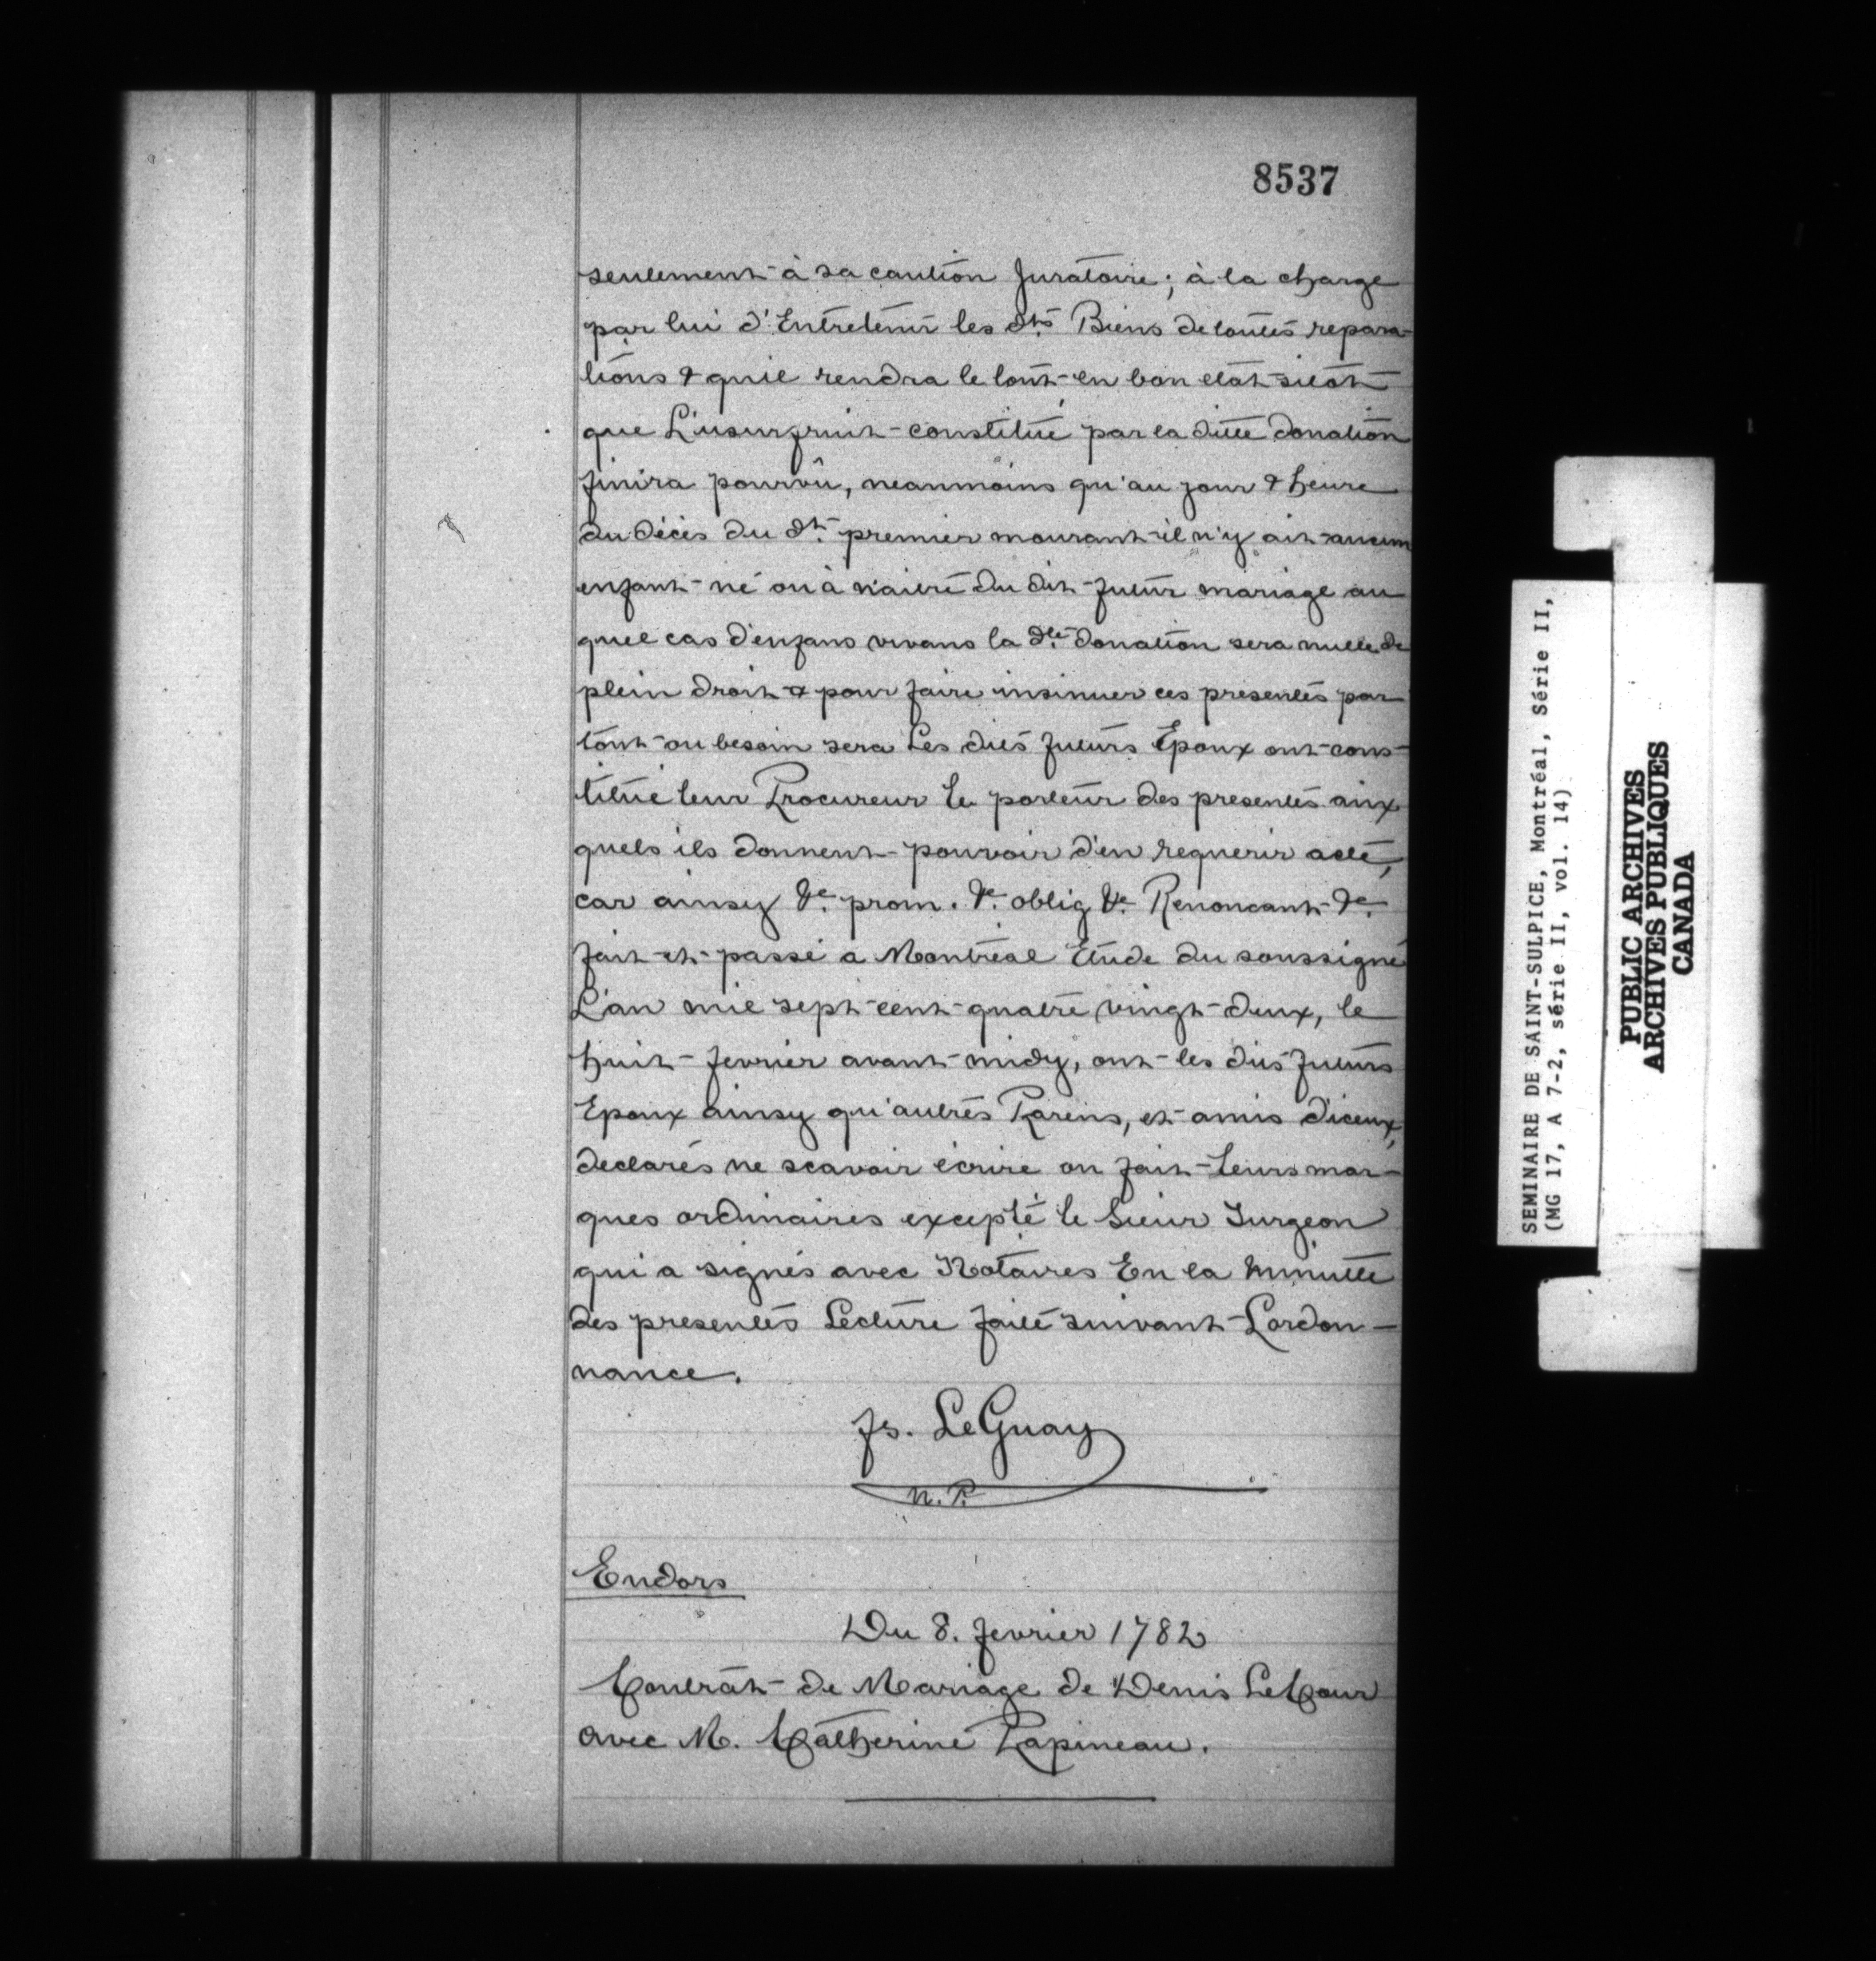 8537
seulement à sa caution Juratoire; à la charge
par lui d'Entretenir les dts Biens de toutes repara-
tions & quil rendra le tout en bon etat sitot
que L'usurfruit constitué par la ditte donation
finira pourvû, neanmoins qu'au jour & heure
du décès du dt. premier mourant il n'y ait aucun
enfant né ou à naitre du dit futur mariage au
quel cas d'enfans vivans la dte donation sera nulle de
plein droit & pour faire insinuer ces presentes par
tout ou besoin sera Les dits futurs Epoux ont cons-
titué leur Procureur le porteur des presentes aux
quels ils donnent pouvoir d'en requerir acte,
car ainsy &c. prom. &c. oblig &c. Renoncant &c.
fait et passé a Montréal Etude du soussigné
L'an mil sept cent quatre vingt deux, le
huit fevrier avant midy, ont les dits futurs
Epoux ainsy qu'autres Parens, et amis d'iceux,
declarés ne scavoir écrire on fait leurs mar-
ques ordinaires excepté le Sieur Turgeon
qui a signés avec Notaires En la Minutte
des presentes Lecture faite suivant Lordon-
nance.
Fs. LeGuay
N.P.
Endors
Du 8. fevrier 1782
Contrat de Mariage de Denis LeCour
avec M. Catherine Papineau.
SEMINAIRE DE SAINT-SULPICE, Montréal, Série II,
(MG 17, A 7-2, série II, vol. 14)
PUBLIC ARCHIVES
ARCHIVES PUBLIQUES
CANADA